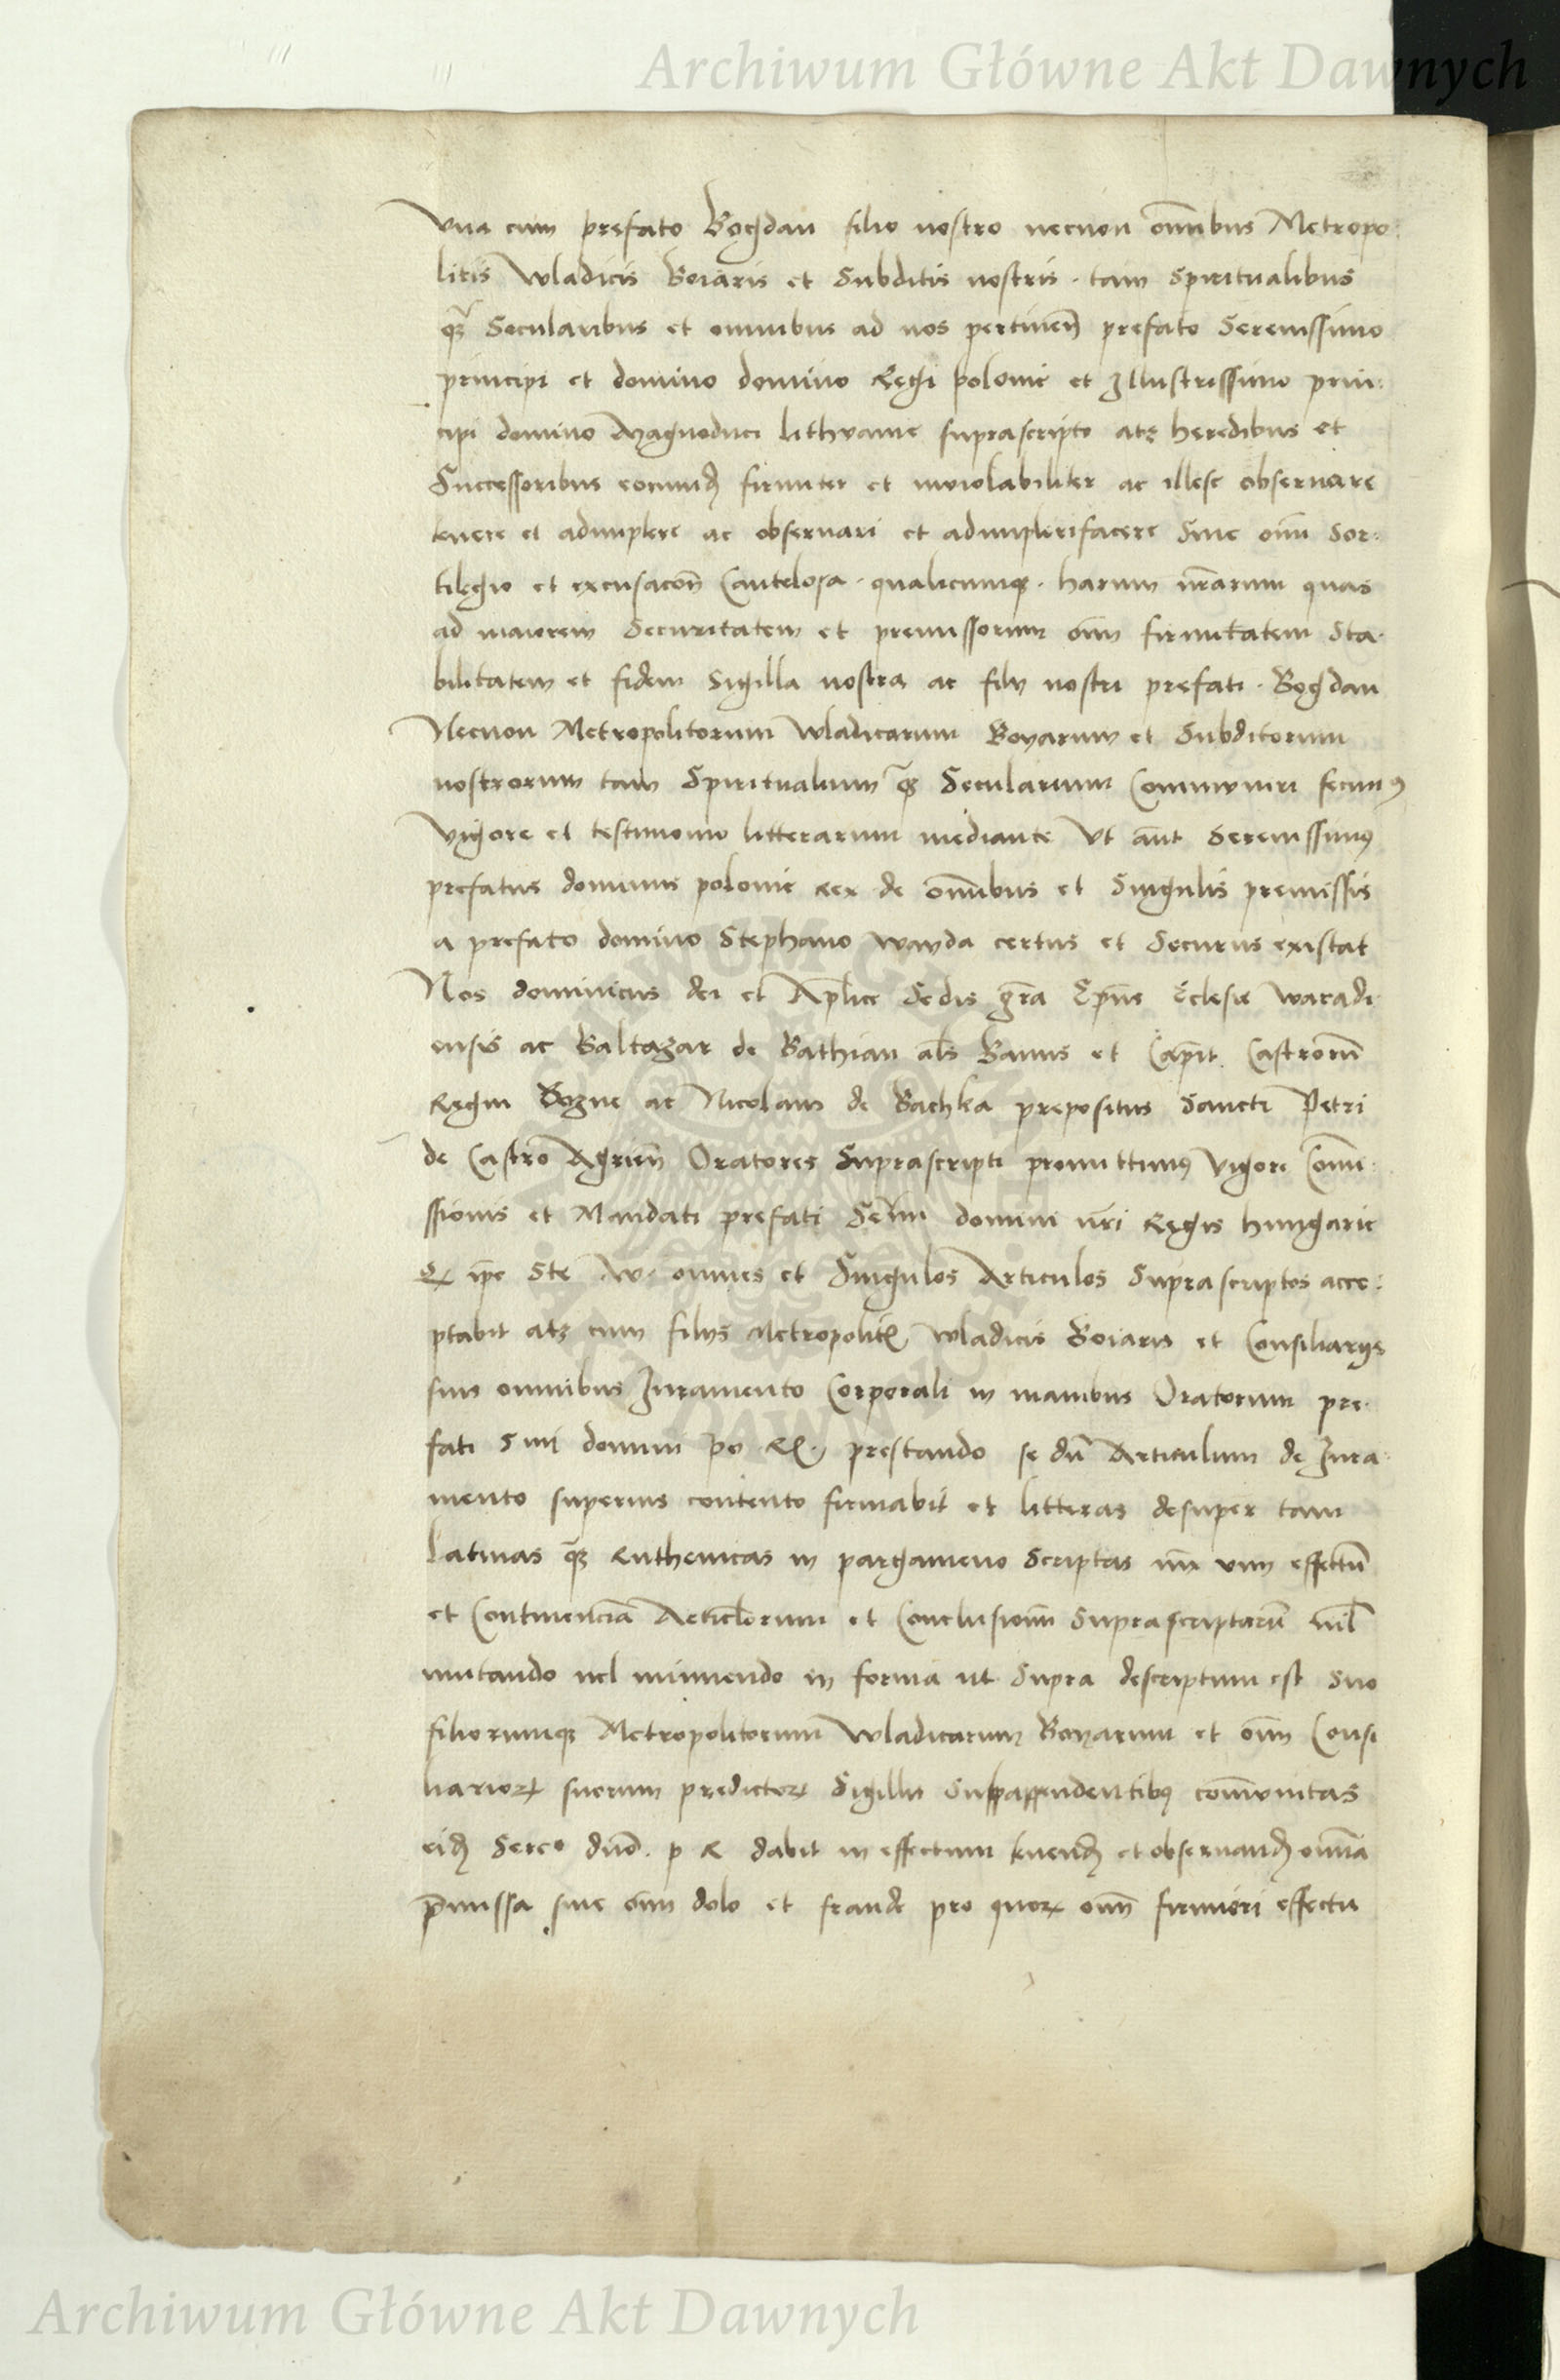 Archiwum Główne Akt Dawnych
Vna cum prefato Bogdan filio nostro necnon om̅ibus Metropo:
litis Wladicis Boiaris et Subditis nostris · tam Spiritualibus
qȝ̃ Secularibus et omnibus ad nos pertinen̄ prefato Serenissimo
principi et domino domino Regi polonie et Illustrissimo prin:
cipi domino Magnoduci lithvanie suprascripto atqȝ heredibus et
Successoribus eorumdꝫ firmiter et inviolabiliter ac illese observare
tenere et adimplere ac observari et adimplerifacere Sine om̅i Sor:
tilegio et excusacōn Cautelosa · qualicumqȝ · harum nr̄arum quas
ad maiorem Securitatem et premissorum om̅i firmitatem Sta·
bilitatem et fidem Sigilla nostra ac filij nostri prefati · Bogdan
Necnon Metropolitorum Wladicarum Boyarum et Subditorum
nostrorum tam Spiritualium qȝ̃ Secularium Communiri fecimꝰ
Vigore et testimonio litterarum mediante Vt aūt Serenissimꝰ
prefatus dominus polonie rex de om̅ibus et Singulis premissis
a prefato domino Stephano wayda certus et Securus existat
Nos dominicus dei et Aplīce Sedis gr̄a Ep̄us Eclesie waradi
ensis ac Baltazar de Bathian als Banus et Capit̄. Castrorum̅
Regni Bozne ac Nicolaus de Bachka prepositus Sancti Petri
de Castro Agrien̄ Oratores Suprascripti promittimꝰ Vigore Com̅i:
ssionis et Mandati prefati Ser̄mi domini nr̄i Regis hungarie
qꝫ ip̄e Ste · W · omnes et Singulos Articulos Suprascriptos acce:
ptabit atqȝ cum filijs Metropolitꝭ Wladicis Boiaris et Consiliarijs
suis omnibus Iuramento Corporali in manibus Oratorum pre·
fati S mi domini po · Rꝭ · prestando se dū Articulum de Iura·
mento superius contento firmabit et litteras desuper tam
Latinas qȝ̃ Ruthenicas in pargameno Scriptas iux vim effectū
et Continenciā Articlorum et Conclusionū Suprascriptarū nil̄
mutando vel minuendo in forma ut Supra descriptum est Suo
filiorumqȝ Metropolitorum Wladicarum Boyarum et om̅i Consi
liarioꝝ suorum predictoꝝ Sigillis Subappendentibꝰ com̅unitas
eidꝫ Sereo dn̄o · p R dabit in effectum tenendꝫ et observandꝫ omnia
p̄missa sine om̅i dolo et fraude pro quoꝝ om̅i firmiori effectu
Archiwum Główne Akt Dawnych